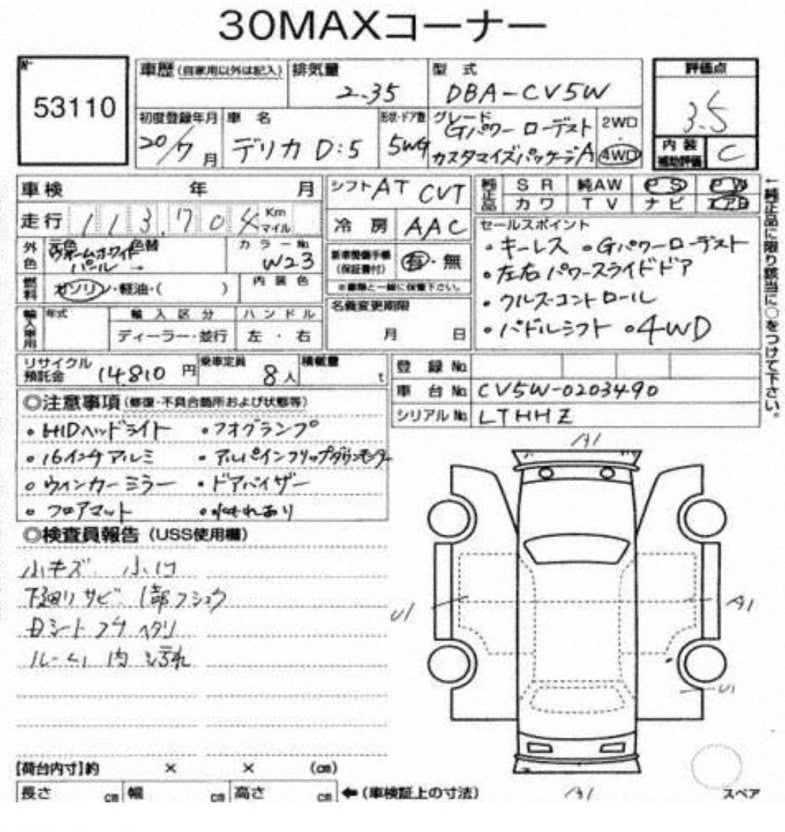 30MAXコーナー
No 53110
車歴 (自家用以外は記入) 排気量 2.35 型式 DBA-CV5W 評価点 3.5
初度登録年月 20/7月 車名 デリカ D:5 形状・ドア数 5WG グレード Gパワー ローデスト カスタマイズパッケージA 2WD 4WD 内装補助評価 C
車検 年 月 シフト AT CVT 純正品 SR 純AW PS PW
カワ TV ナビ エアB
走行 113,704 Km マイル 冷房 AAC セールスポイント
外色 元色 ウォームホワイトパール 色替 → カラーNo W23 新車整備手帳(保証書付) 有・無 ・キーレス ・Gパワーローデスト
燃料 ガソリン・軽油・( ) 内装色 ※書類と一緒に保管下さい。 ・左右パワースライドドア
輸入車用 年式 輸入区分 ハンドル 名義変更期限 ・クルーズコントロール
ディーラー・並行 左・右 月 日 ・パドルシフト ・4WD
←純正品に限り該当に○をつけて下さい。
リサイクル預託金 14,810円 乗車定員 8人 積載量 t 登録No
車台No CV5W-0203490
シリアルNo LTHHZ
◎注意事項 (修復・不具合箇所および状態等)
・HIDヘッドライト ・フォグランプ
・16インチアルミ ・アルパインフリップダウンモニター
・ウィンカーミラー ・ドアバイザー
・フロアマット
◎検査員報告 (USS使用欄)
小キズ、小凹
下回りサビ、1部フショク
ルーム内汚れ
U1 A1
U1
【荷台内寸】約 × × (cm)
長さ cm 幅 cm 高さ cm ←(車検証上の寸法) スペア